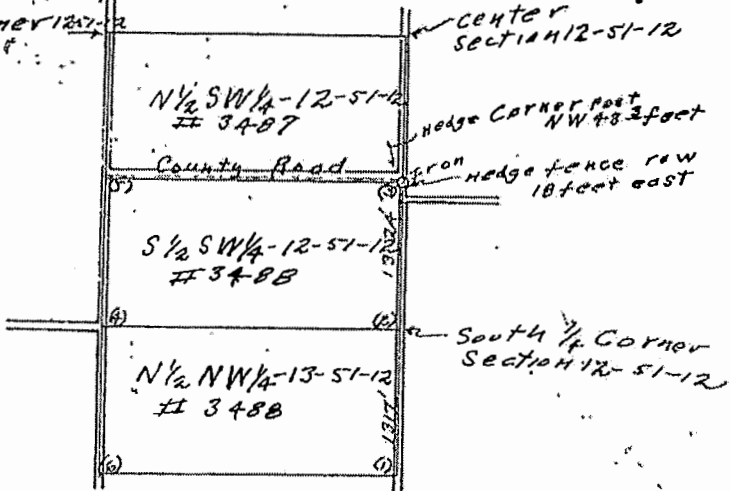 ner 12-51-12
center
section 12-51-12
N½ SW¼-12-51-12
# 3487
Hedge Corner post
NW 48 3 feet
County Road
Iron
Hedge fence row
18 feet east
(5)
S½ SW¼-12-51-12
# 3488
1324'
(4)
(2)
South ¼ Corner
Section 12-51-12
N½ NW¼-13-51-12
# 3488
1317'
(6)
(1)